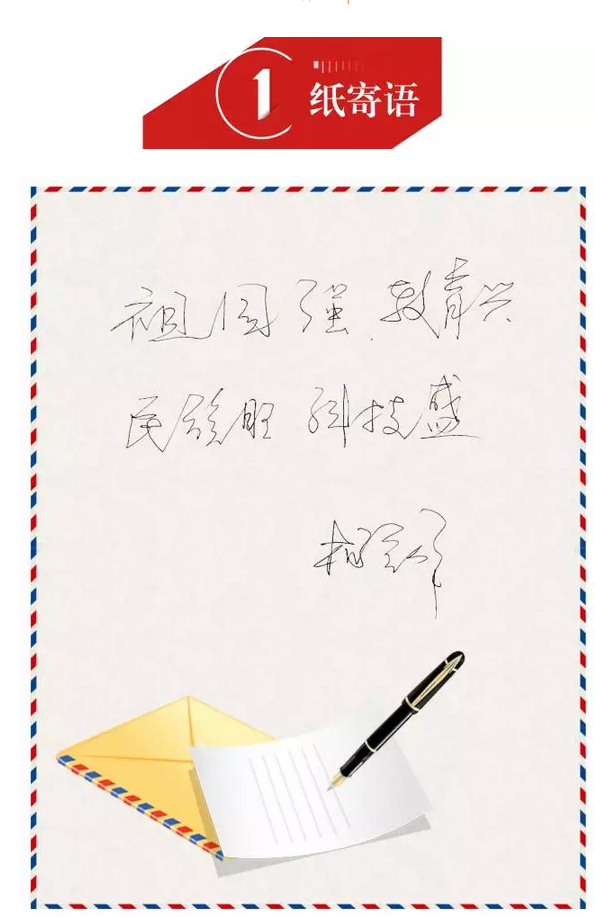 1
纸寄语
祖国强 教育兴
民族旺 科技盛